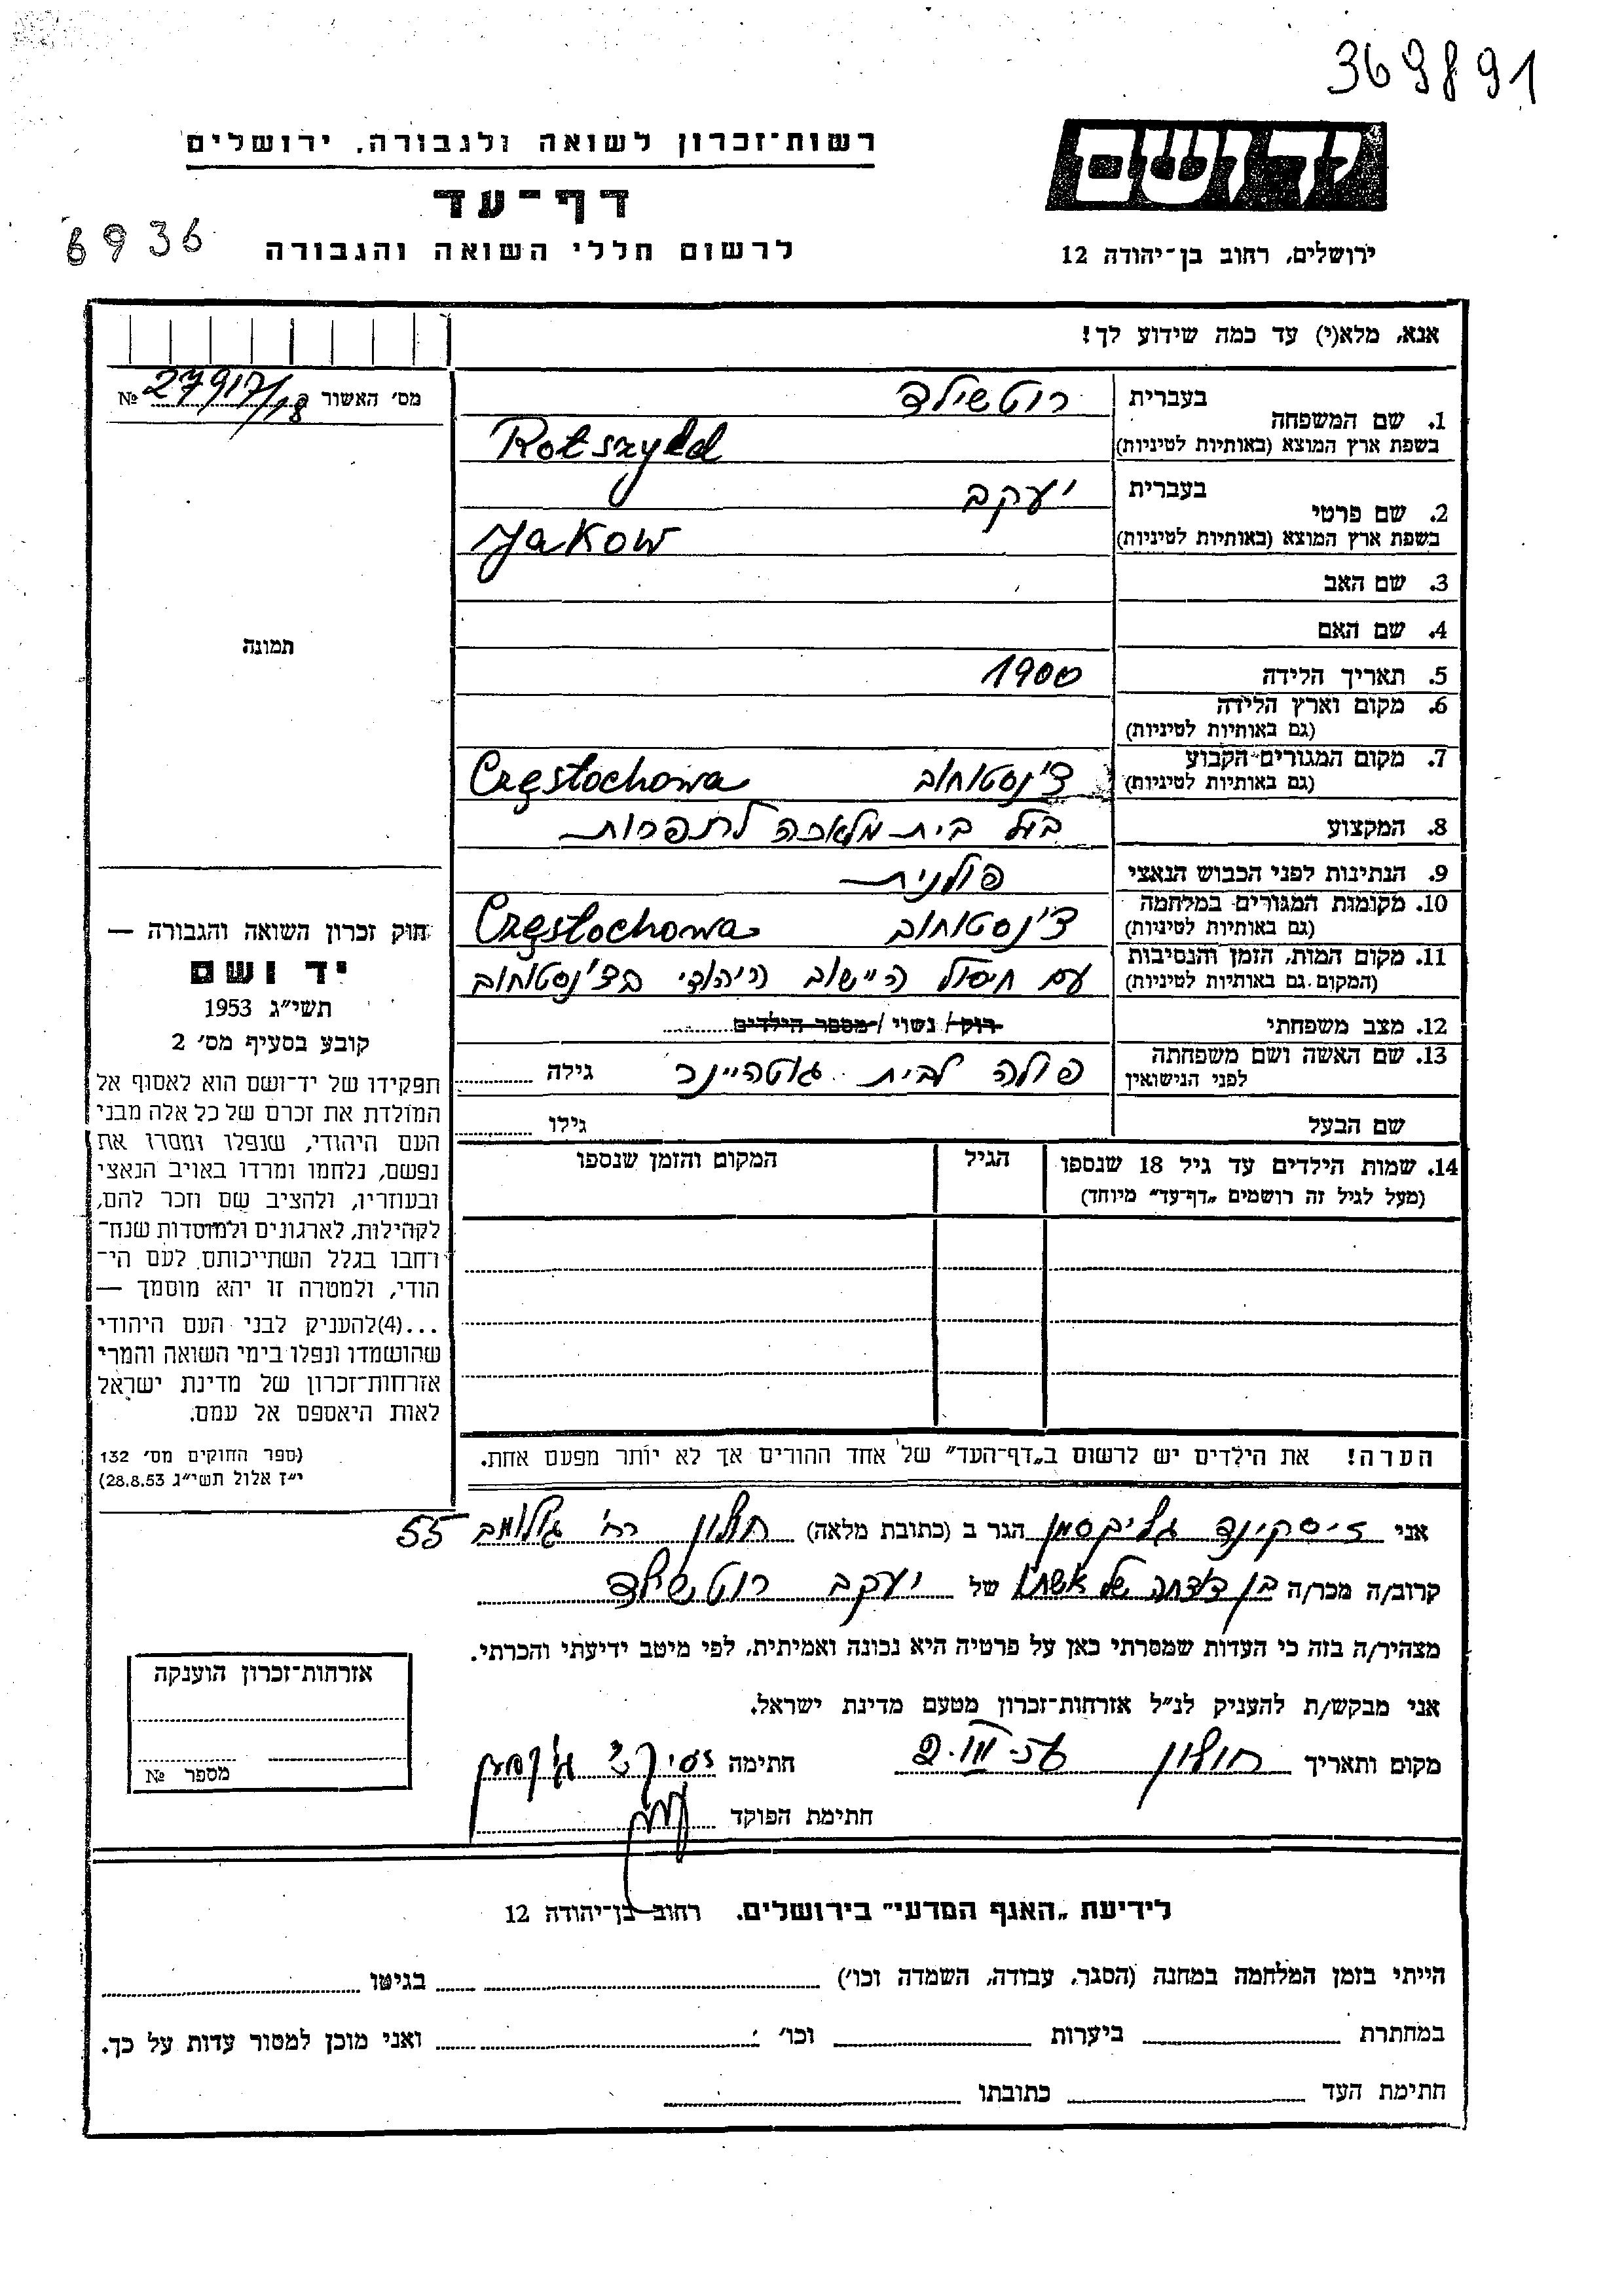 369891
יד ושם
רשות־זכרון לשואה ולגבורה, ירושלים
דף־עד
לרשום חללי השואה והגבורה
6936
ירושלים, רחוב בן־יהודה 12
אנא, מלא(י) עד כמה שידוע לך!
מס׳ האשור № 27917/18
1. שם המשפחה
בעברית רוטשילד
בשפת ארץ המוצא (באותיות לטיניות) Rotszyld
2. שם פרטי
בעברית יעקב
בשפת ארץ המוצא (באותיות לטיניות) Jakow
3. שם האב
4. שם האם
תמונה
5. תאריך הלידה 1900
6. מקום וארץ הלידה
(גם באותיות לטיניות)
7. מקום המגורים הקבוע צ'נסטוחוב Częstochowa
(גם באותיות לטיניות)
8. המקצוע בעל בית מלאכה לתפרות
9. הנתינות לפני הכבוש הנאצי פולנית
10. מקומות המגורים במלחמה צ'נסטוחוב Częstochowa
(גם באותיות לטיניות)
11. מקום המות, הזמן והנסיבות עם חיסול היישוב היהודי בצ'נסטוחוב
(המקום גם באותיות לטיניות)
12. מצב משפחתי רוק/ נשוי /מספר הילדים
13. שם האשה ושם משפחתה פולה לבית גילה
לפני הנישואין
שם הבעל גילו
14. שמות הילדים עד גיל 18 שנספו הגיל המקום והזמן שנספו
(מעל לגיל זה רושמים „דף־עד״ מיוחד)
חוק זכרון השואה והגבורה —
יד ושם
תשי״ג 1953
קובע בסעיף מס׳ 2
תפקידו של יד־ושם הוא לאסוף אל
המולדת את זכרם של כל אלה מבני
העם היהודי, שנפלו ומסרו את
נפשם, נלחמו ומרדו באויב הנאצי
ובעוזריו, ולהציב שם וזכר להם,
לקהילות, לארגונים ולמוסדות שנח־
רחבו בגלל השתייכותם לעם הי־
הודי, ולמטרה זו יהא מוסמך —
...(4)להעניק לבני העם היהודי
שהושמדו ונפלו בימי השואה והמרי
אזרחות־זכרון של מדינת ישראל
לאות היאספם אל עמם.
(ספר החוקים מס׳ 132
י״ז אלול תשי״ג 28.8.53)
הערה! את הילדים יש לרשום ב„דף־העד״ של אחד ההורים אך לא יותר מפעם אחת.
אני זיסקינד הגר ב (כתובת מלאה) חולון רח' 55
קרוב/ה מכר/ה בן דודחה של אשתו של יעקב רוטשילד
מצהיר/ה בזה כי העדות שמסרתי כאן על פרטיה היא נכונה ואמיתית, לפי מיטב ידיעתי והכרתי.
אני מבקש/ת להעניק לנ״ל אזרחות־זכרון מטעם מדינת ישראל.
מקום ותאריך חולון חתימה
חתימת הפוקד
אזרחות־זכרון הוענקה
מספר №
לידיעת „האגף המדעי״ בירושלים. רחוב בן־יהודה 12
הייתי בזמן המלחמה במחנה (הסגר, עבודה, השמדה וכו׳) בגיטו
במחתרת ביערות וכו׳ ואני מוכן למסור עדות על כך.
חתימת העד כתובתו